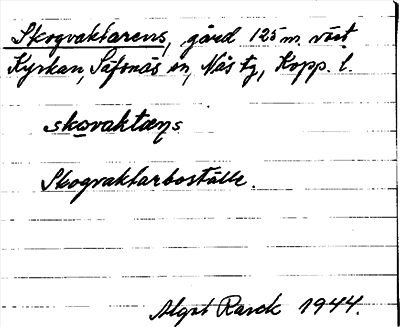 Skogvaktarens, gård 125 m. väst
Kyrkan, Säfsnäs sn, Nås tg, Kopp. l.
skovaktaṇs
Skogvaktarboställe.
Algot Rarck 1944.